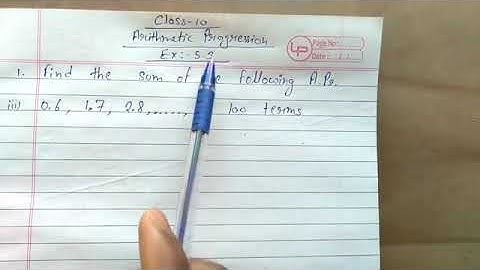 Class-10
Arithmetic Progression
Ex:-5.3
Page No:
Date:
1. Find the sum of the following A.Ps.
iii) 0.6, 1.7, 2.8, ......, 100 terms